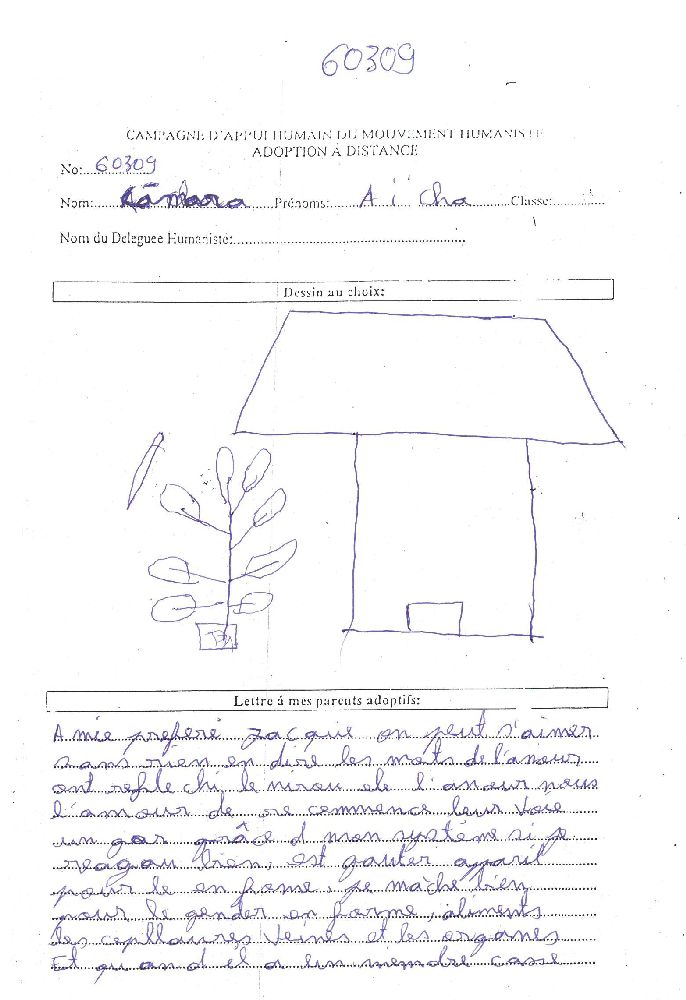 60309
CAMPAGNE D'APPUI HUMAIN DU MOUVEMENT HUMANISTE
ADOPTION À DISTANCE
No: 60309
Nom: Camara Prénoms: Aï cha Classe:
Nom du Deleguee Humaniste:
Dessin au choix:
Lettre á mes parents adoptifs:
A mie preferé jacque on peut s'aimer
sans rien en dire les mots de l'amour
ont refle chi le mirou de l'amour nous
l'amour de re commence leur voie
un gar grâce d mon système si je
bien, est gauter
pour le en forme, je mâche bien
pour le gender en forme, aliments
les capllaires Veines et les organes
Et qu an d el a un membre casse